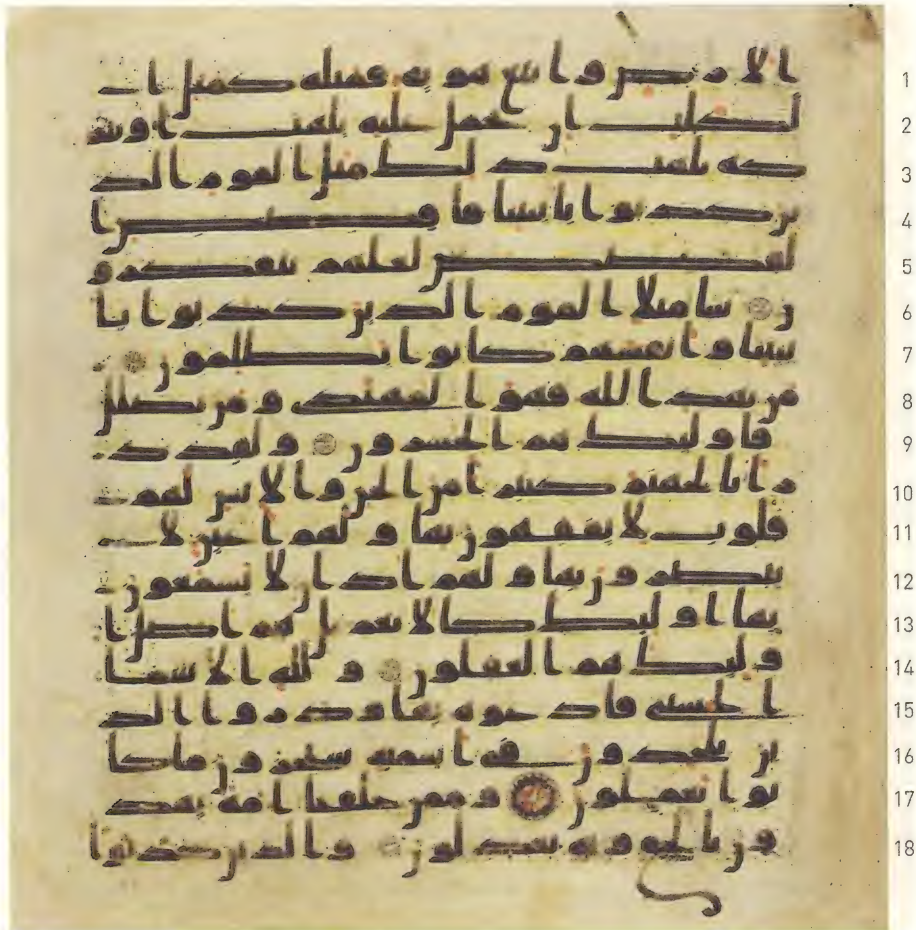 1 الارض واتبع هويه فمثله كمثل ا
2 لكلب ان تحمل عليه يلهث او تتر
3 كه يلهث ذلك مثل القوم الذ
4 ين كذبوا بايتنا فاقصص ا
5 لقصص لعلهم يتفكرو
6 ن سا مثلا القوم الذين كذبوا با
7 يتنا وانفسهم كانوا يظلمون
8 من يهد الله فهو المهتدى ومن يضلل
9 فاوليك هم الخسرون ولقد ذ
10 رانا لجهنم كثيرا من الجن والانس لهم
11 قلوب لا يفقهون بها ولهم اعين لا
12 يبصرون بها ولهم اذان لا يسمعون
13 بها اوليك كالانعم بل هم اضل ا
14 وليك هم الغفلون ولله الاسما
15 الحسنى فادعوه بها وذروا الذ
16 ين يلحدون فى اسميه سيجزون ما كا
17 نوا يعملون وممن خلقنا امة يهد
18 ون بالحق وبه يعدلون والذين كذبوا